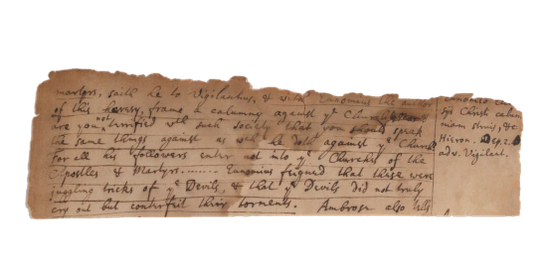 martyrs, saith he to Vigilantius, & with Eunomius the author
of this heresy, frame a calumny against yͤ Church
are you not terrified with such society that you should speak
the same things against us wᶜʰ he doth against yͤ Church
For all his followers enter not into yͤ Churches of the
Apostles & Martyrs....... Eunomius feigned that these were
juggling tricks of yͤ Devils, & that yͤ Devils did not truly
cry out but conterfeit their torments. Ambrose also tells
Christi
Hieron.
adv. Vigilant.